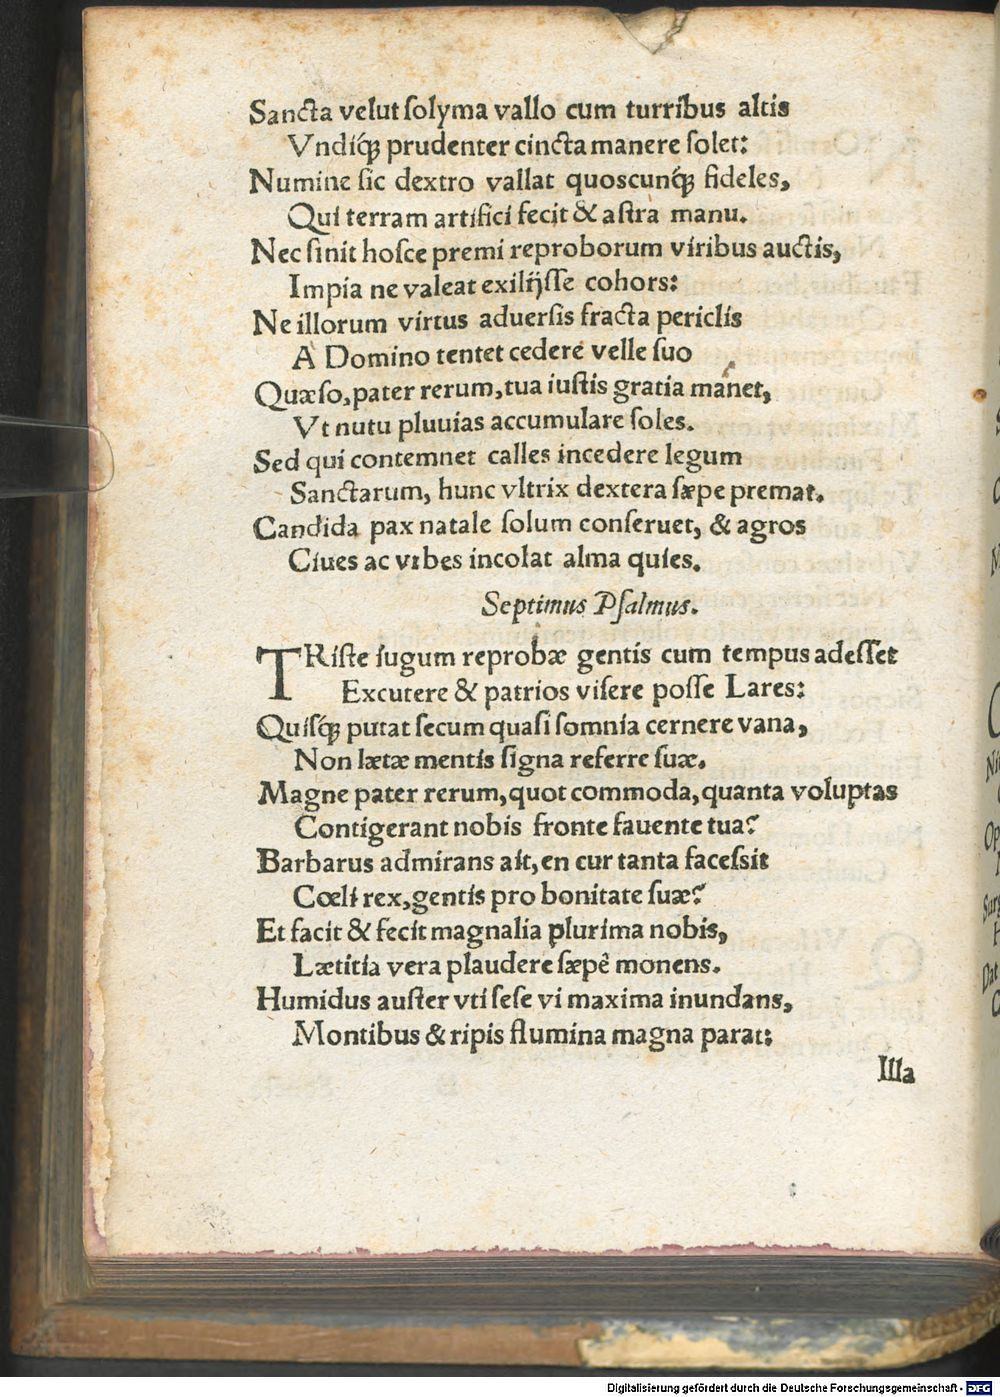 Sancta velut ſolyma vallo cum turribus altis
Vndiq́ꝫ prudenter cincta manere ſolet:
Numine ſic dextro vallat quoscunq́ꝫ fideles,
Qui terram artifici fecit & aſtra manu.
Nec ſinit hoſce premi reproborum viribus auctis,
Impia ne valeat exilijſſe cohors:
Ne illorum virtus aduerſis fracta periclis
A Domino tentet cedere velle ſuo
Quæſo, pater rerum, tua iuſtis gratia manet,
Vt nutu pluuias accumulare ſoles.
Sed qui contemnet calles incedere legum
Sanctarum, hunc vltrix dextera ſæpe premat.
Candida pax natale ſolum conſeruet, & agros
Ciues ac vrbes incolat alma quies.
Septimus Pſalmus.
TRiſte iugum reprobæ gentis cum tempus adeſſet
Excutere & patrios viſere poſſe Lares:
Quiſq́ꝫ putat ſecum quaſi ſomnia cernere vana,
Non lætæ mentis ſigna referre ſuæ.
Magne pater rerum, quot commoda, quanta voluptas
Contigerant nobis fronte fauente tua?
Barbarus admirans ait, en cur tanta faceſsit
Cœli rex, gentis pro bonitate ſuæ?
Et facit & fecit magnalia plurima nobis,
Lætitia vera plaudere ſæpè monens.
Humidus auſter vti ſeſe vi maxima inundans,
Montibus & ripis flumina magna parat:
Illa
Digitalisierung gefördert durch die Deutsche Forschungsgemeinschaft - DFG